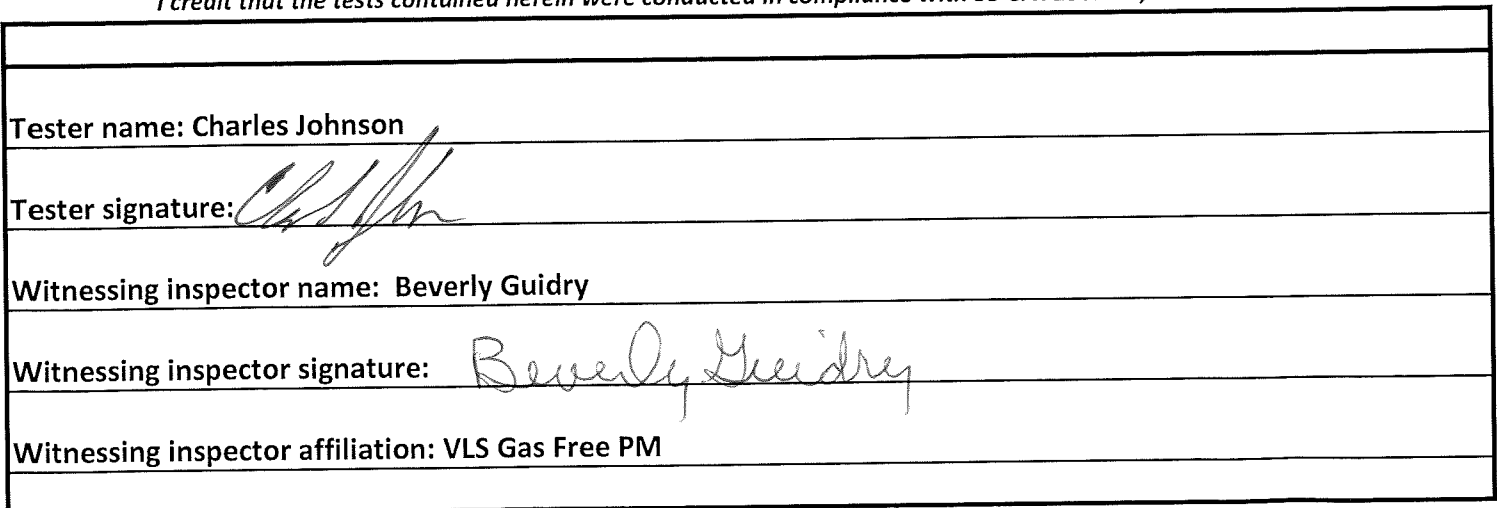 I credit that the tests contained herein were conducted in compliance with
Tester name: Charles Johnson
Tester signature:
Witnessing inspector name: Beverly Guidry
Witnessing inspector signature: Beverly Guidry
Witnessing inspector affiliation: VLS Gas Free PM